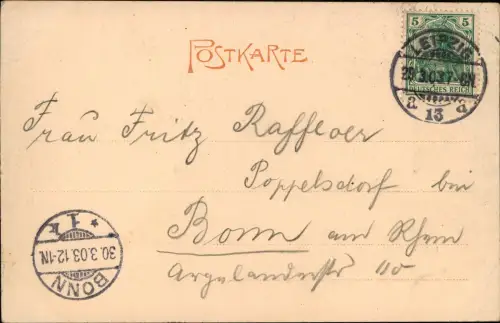 POSTKARTE
5 5
DEUTSCHES REICH
LEIPZIG
29.3.03.7-8N
a 13 a
Frau Fritz Raffloer
Poppelsdorf bei
Bonn am Rhein
Argelanderstr
BONN
30.3.03.12-1N
* 1 *